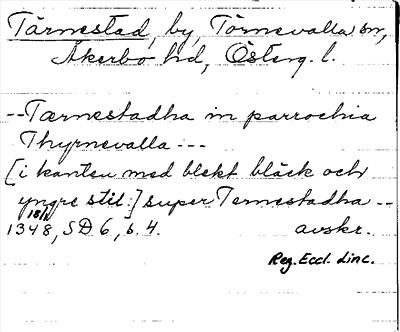 Tärnestad, by, Törnevalla sn,
Åkerbo hd, Österg. l.
-- Tærnestadha in parrochia
Thyrnevalla ---
[i kanten med blekt bläck och
yngre stil:] super Ternestadha --
18/12
1348, SD 6, s. 4. avskr.
Reg. Eccl. Linc.